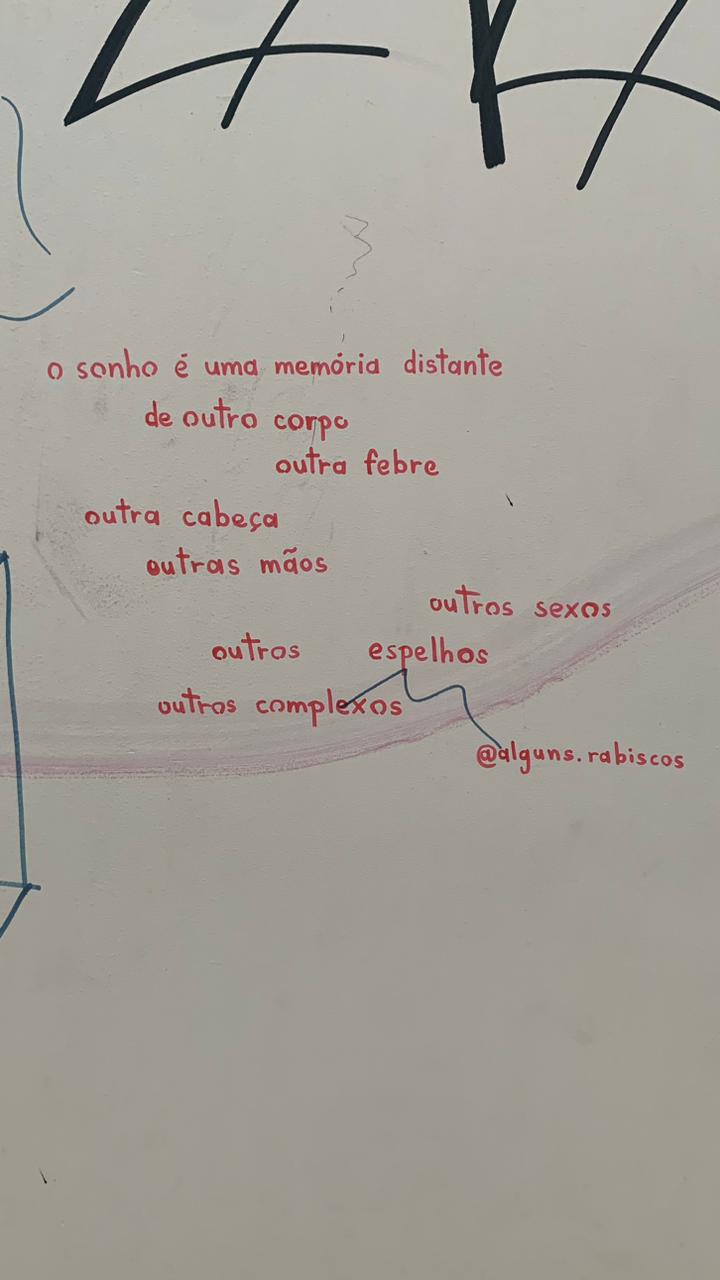 o sonho é uma memória distante
de outro corpo
outra febre
outra cabeça
outras mãos
outros sexos
outros espelhos
outros complexos
@alguns.rabiscos